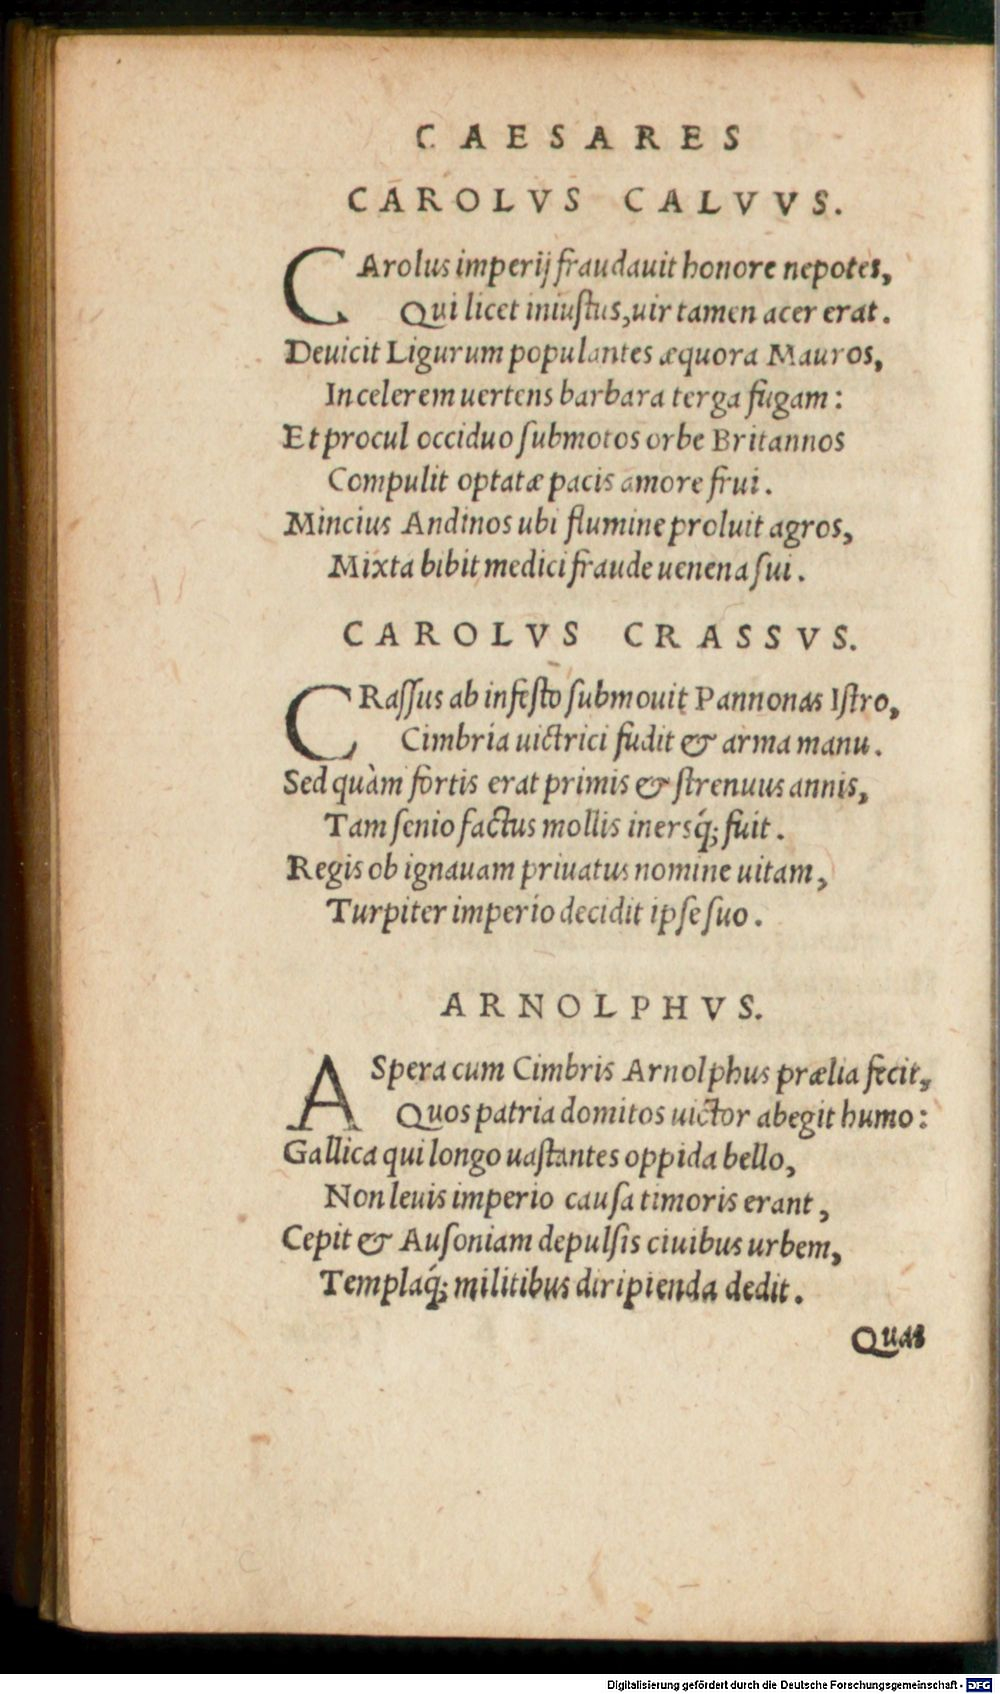 CAESARES
CAROLVS CALVVS.
CArolus imperij fraudauit honore nepotes,
Qui licet iniustus, uir tamen acer erat.
Deuicit Ligurum populantes æquora Mauros,
In celerem uertens barbara terga fugam:
Et procul occiduo submotos orbe Britannos
Compulit optatæ pacis amore frui.
Mincius Andinos ubi flumine proluit agros,
Mixta bibit medici fraude uenena sui.
CAROLVS CRASSVS.
CRassus ab infesto submouit Pannonas Istro,
Cimbria uictrici fudit & arma manu.
Sed quàm fortis erat primis & strenuus annis,
Tam senio factus mollis inersq́; fuit.
Regis ob ignauam priuatus nomine uitam,
Turpiter imperio decidit ipse suo.
ARNOLPHVS.
ASpera cum Cimbris Arnolphus prælia fecit,
Quos patria domitos uictor abegit humo:
Gallica qui longo uastantes oppida bello,
Non leuis imperio causa timoris erant,
Cepit & Ausoniam depulsis ciuibus urbem,
Templaq́; militibus diripienda dedit.
Quas
Digitalisierung gefördert durch die Deutsche Forschungsgemeinschaft - DFG